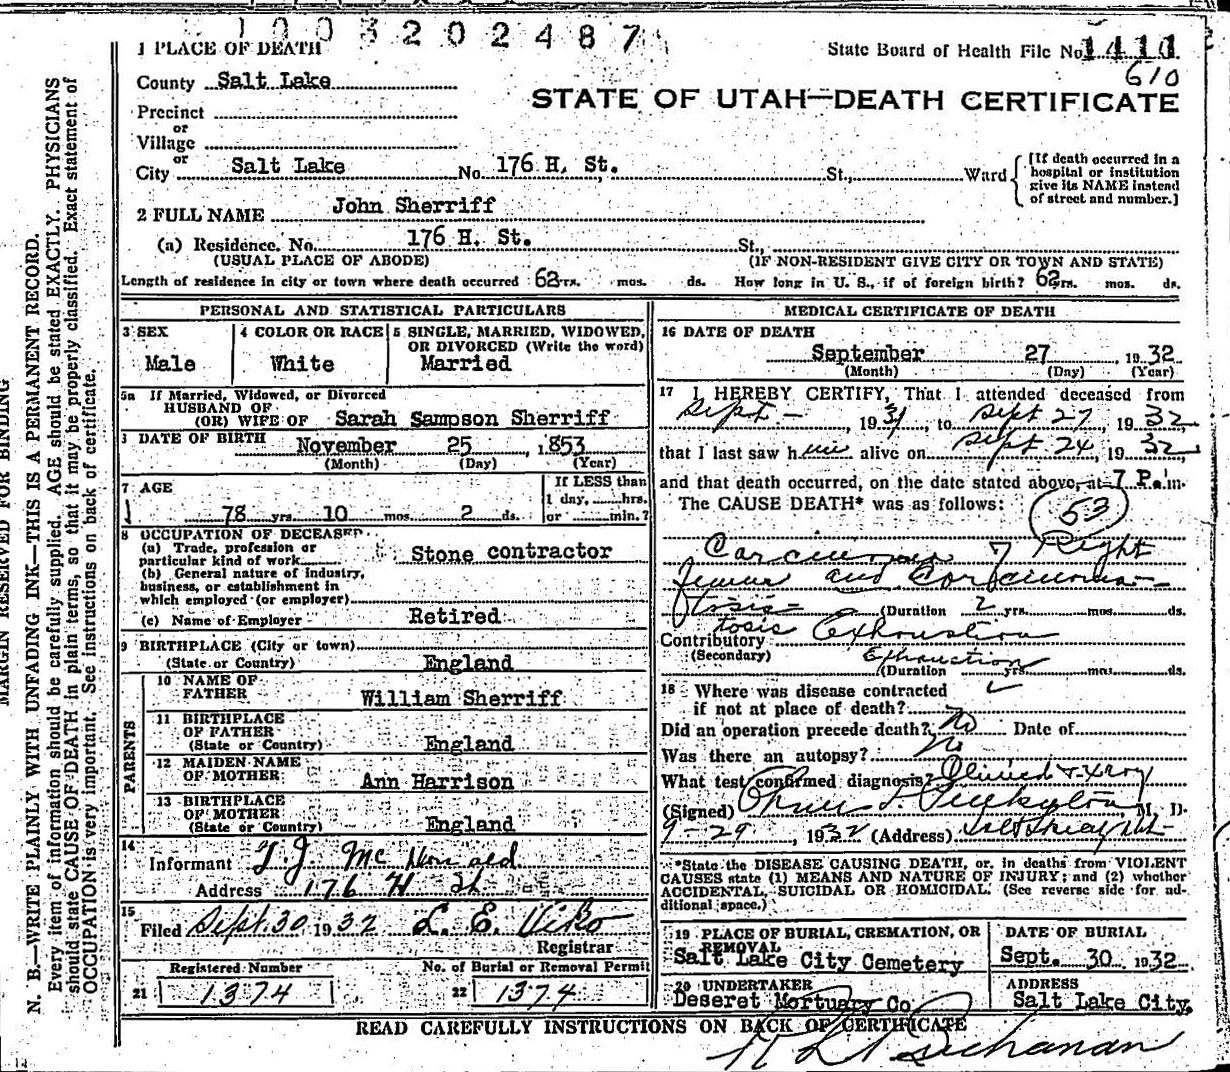 1003202487
1 PLACE OF DEATH
State Board of Health File No. 1411
610
County Salt Lake
STATE OF UTAH—DEATH CERTIFICATE
Precinct
or
Village
or
City Salt Lake No. 176 H. St. St., Ward
[If death occurred in a
hospital or institution
give its NAME instead
of street and number.]
2 FULL NAME John Sherriff
(a) Residence. No. 176 H. St. St.,
(USUAL PLACE OF ABODE) (IF NON-RESIDENT GIVE CITY OR TOWN AND STATE)
Length of residence in city or town where death occurred 62 yrs. mos. ds. How long in U. S., if of foreign birth? 62 yrs. mos. ds.
PERSONAL AND STATISTICAL PARTICULARS
3 SEX
Male
4 COLOR OR RACE
White
5 SINGLE, MARRIED, WIDOWED,
OR DIVORCED (Write the word)
Married
5a If Married, Widowed, or Divorced
HUSBAND OF
(OR) WIFE OF Sarah Sampson Sherriff
DATE OF BIRTH
November 25, 1853
(Month) (Day) (Year)
7 AGE
78 yrs 10 mos. 2 ds.
If LESS than
1 day, hrs.
or min.?
8 OCCUPATION OF DECEASED
(a) Trade, profession or
particular kind of work Stone contractor
(b) General nature of industry,
business, or establishment in
which employed (or employer)
(c) Name of Employer Retired
9 BIRTHPLACE (City or town)
(State or Country) England
PARENTS
10 NAME OF
FATHER William Sherriff
11 BIRTHPLACE
OF FATHER
(State or Country) England
12 MAIDEN NAME
OF MOTHER Ann Harrison
13 BIRTHPLACE
OF MOTHER
(State or Country) England
14
Informant T. J. McDonald
Address 176 H St
15
Filed Sept. 30 1932 L. E. Viko
Registrar
Registered Number
21 1374
No. of Burial or Removal Permit
22 1374
MEDICAL CERTIFICATE OF DEATH
16 DATE OF DEATH
September 27, 1932
(Month) (Day) (Year)
17 I HEREBY CERTIFY, That I attended deceased from
Sept - , 1931, to Sept 27, 1932
that I last saw him alive on Sept 24, 1932
and that death occurred, on the date stated above, at 7 P. m.
The CAUSE DEATH* was as follows:
53
Carcinoma of Right
Femur and Carcinoma-
tosis (Duration 2 yrs. mos. ds.
tosis
Contributory Exhaustion
(Secondary) Exhaustion
(Duration yrs. mos. ds.
18 Where was disease contracted
if not at place of death?
Did an operation precede death? No Date of
Was there an autopsy? No
What test confirmed diagnosis? Clinical & xray
(Signed) M. D.
9-29, 1932 (Address)
*State the DISEASE CAUSING DEATH, or, in deaths from VIOLENT
CAUSES state (1) MEANS AND NATURE OF INJURY; and (2) whether
ACCIDENTAL, SUICIDAL OR HOMICIDAL. (See reverse side for ad-
ditional space.)
19 PLACE OF BURIAL, CREMATION, OR
REMOVAL
Salt Lake City Cemetery
DATE OF BURIAL
Sept. 30 1932
20 UNDERTAKER
Deseret Mortuary Co
ADDRESS
Salt Lake City,
READ CAREFULLY INSTRUCTIONS ON BACK OF CERTIFICATE
Buchanan
MARGIN RESERVED FOR BINDING
N. B.—WRITE PLAINLY WITH UNFADING INK—THIS IS A PERMANENT RECORD.
Every item of information should be carefully supplied. AGE should be stated EXACTLY. PHYSICIANS
should state CAUSE OF DEATH in plain terms, so that it may be properly classified. Exact statement of
OCCUPATION is very important. See instructions on back of certificate.